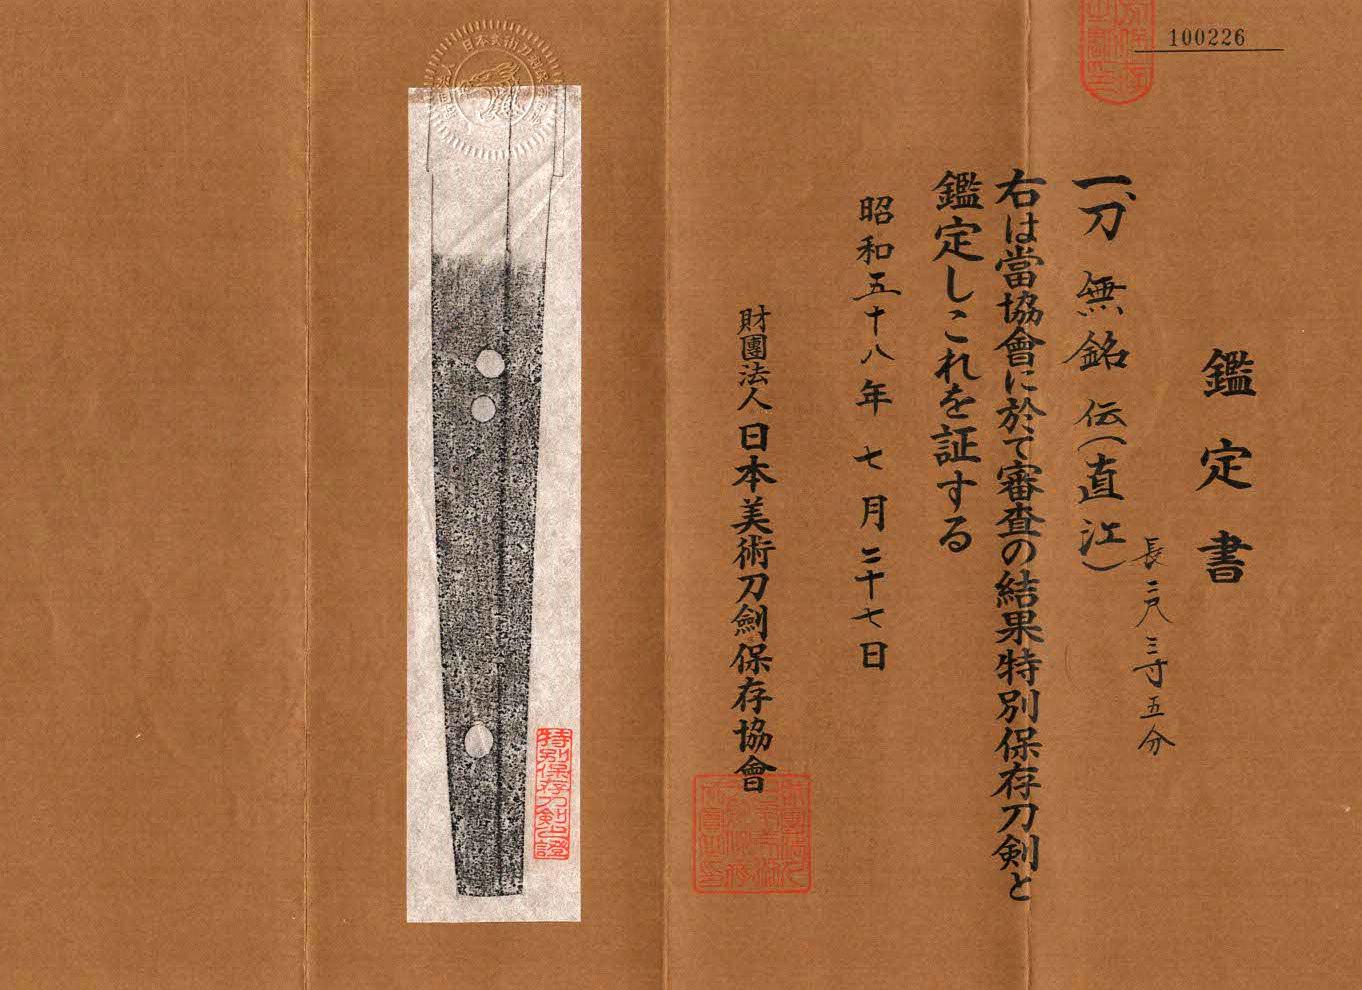 100226
鑑定書
一、刀 無銘 伝(直江)
長二尺三寸五分
右は當協會に於て審査の結果特別保存刀剣と
鑑定しこれを証する
昭和五十八年七月二十七日
財團法人日本美術刀劍保存協會
特別保存刀剣之證
日本美術刀剣